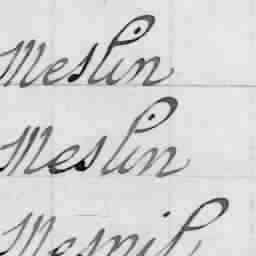 Meslin
Meslin
Mesnil